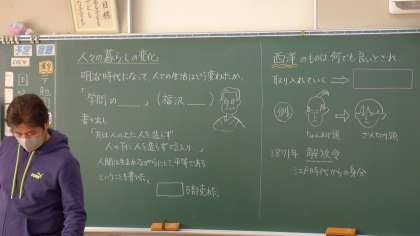 人々の暮らしの変化
明治時代になって人々の生活はどう変わったか。
「学問の___」(福沢___)
書き出し
「天は人の上に人を造らず
人の下に人を造らずと言えり…」
人間は生まれながらにして平等である
ということを書いた。
□万部売れた。
西洋のものは何でも良いとされ
取り入れていく→
例
ちょんまげ頭
ざんぎり頭
1871年 解放令
江戸時代からの身分
PUMA
目標